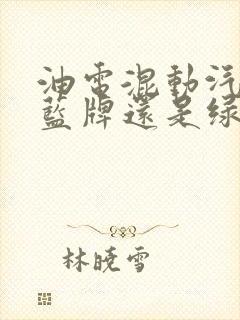 油電混動汽
藍牌還是綠
林曉雪